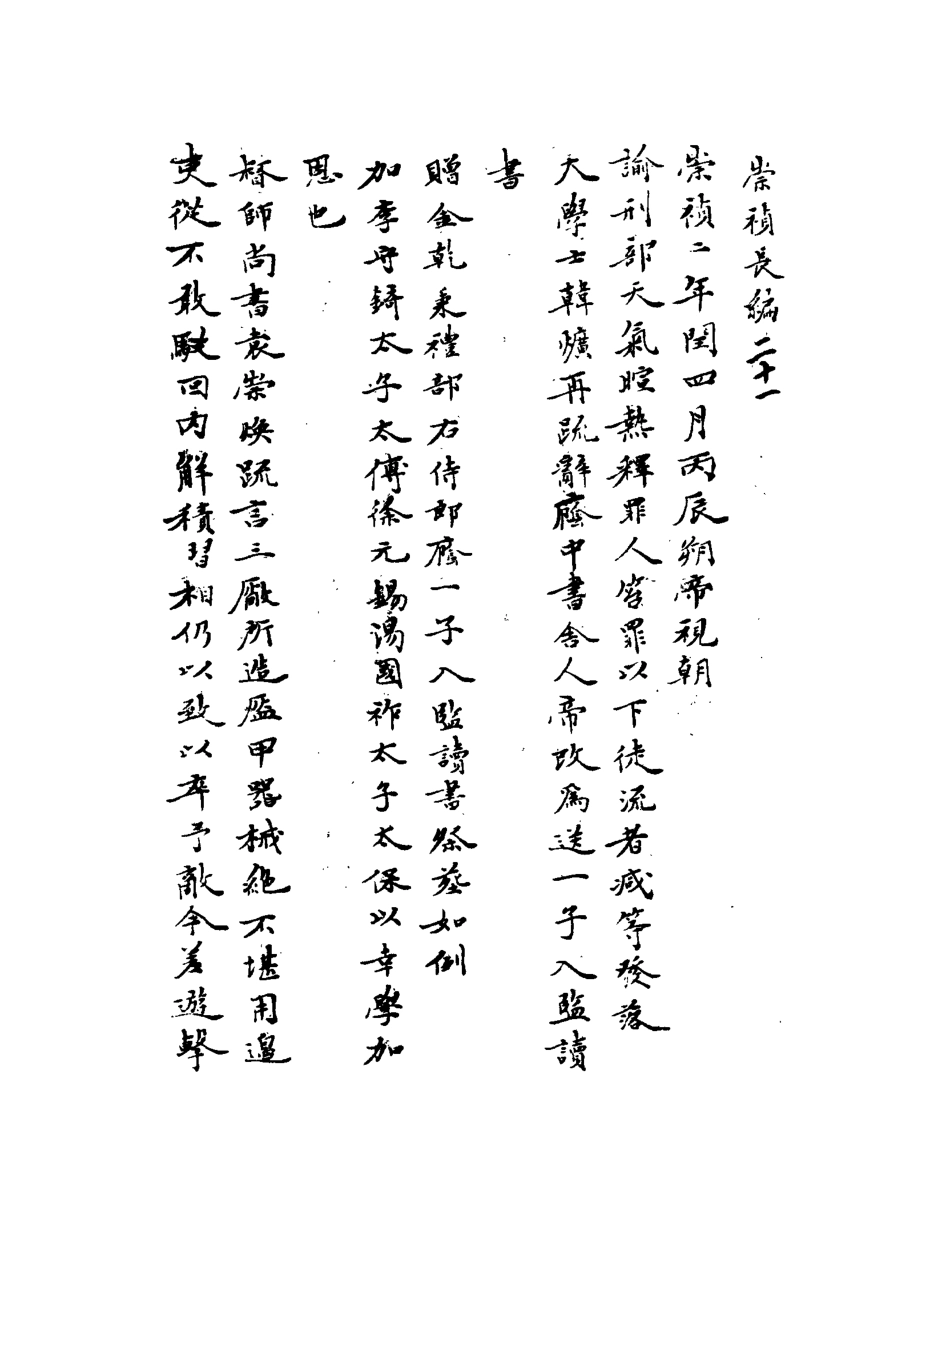 崇禎長編二十一
崇禎二年閏四月丙辰朔帝視朝
諭刑部天氣暄熱釋罪人笞罪以下徒流者减等發落
大學士韓爌再疏辭廕中書舍人帝改為送一子入監讀
書
贈金乾秉禮部右侍郎廕一子入監讀書祭塟如例
加李守錡太子太傅徐元錫湯國祚太子太保以幸學加
恩也
督師尚書袁崇煥疏言三廠所造盔甲器械絶不堪用邊
吏從不敢駁回內解積習相仍以致以卒予敵今差遊擊